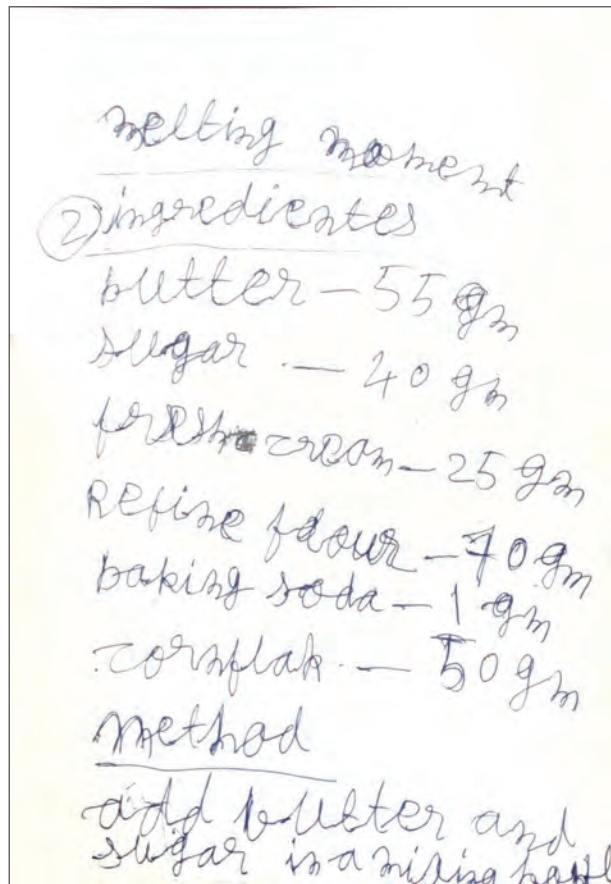 melting moment
② ingredientes
butter – 55 gm
sugar – 40 gm
fresh cream – 25 gm
Refine flour – 70 gm
baking soda – 1 gm
cornflak – 50 gm
method
add butter and
sugar in a mixing